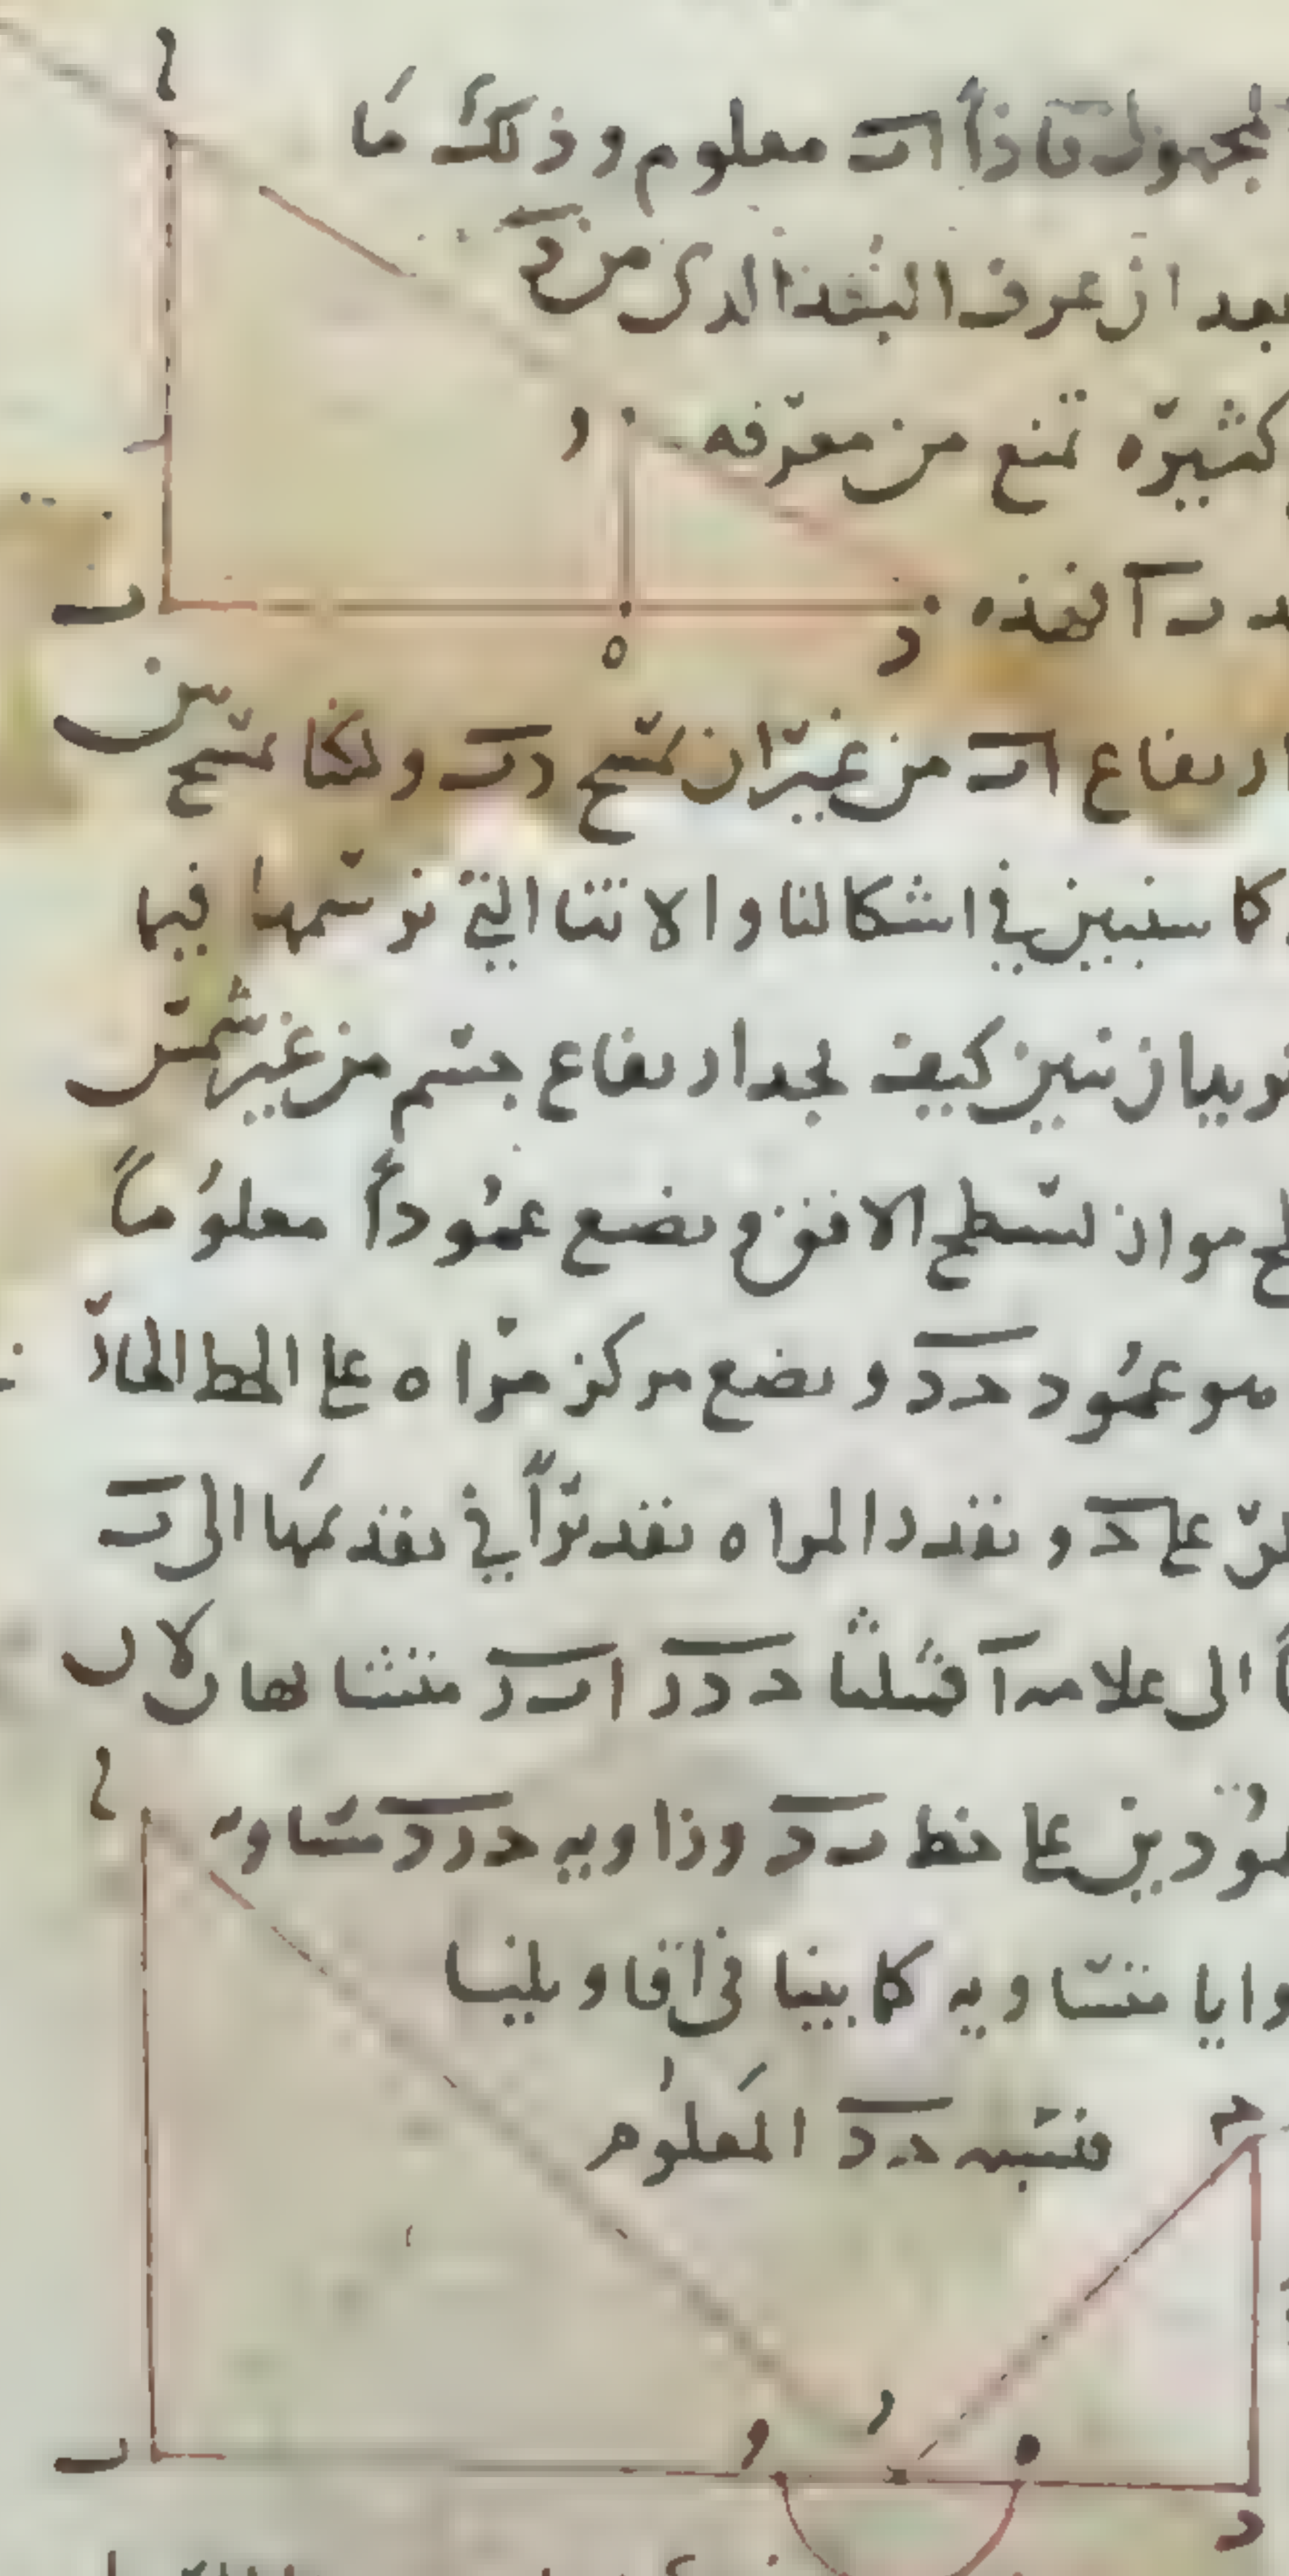 ا
المجهول فاذاً اب معلوم وذلك ما
بعد ان عرف البعد الذى من د
كثيره تمنع من معرفه
و
د ب ا فهذه
ب
ه
د
ارتفاع اب من غير ان نمسح دب ولكنا نمسح من
كما سنبين في اشكالنا والاتنا التي نوسمها فيما
ان نبين كيف نجد ارتفاع جسم من غير شمس
موازٍ لسطح الافق ونضع عموداً معلوماً
هو عمود حد ونضع مركز مراه على الخط المارّ
على د ونقدر المراه تقديراً في تقديمها الى ب
الى علامه ا فمثلثا ح د ر ا ب ر متشابهان لان
ا
عمودين على خط بد وزاويه حرد مساويه
زوايا متساويه كما بينا فى اقاويلنا
فنسبه حد المعلوم
ح
و
ر
ه
ب
د